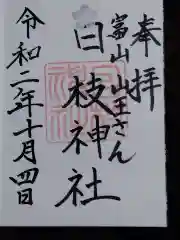 奉拝
富山山王さん
日枝神社
令和二年十月四日